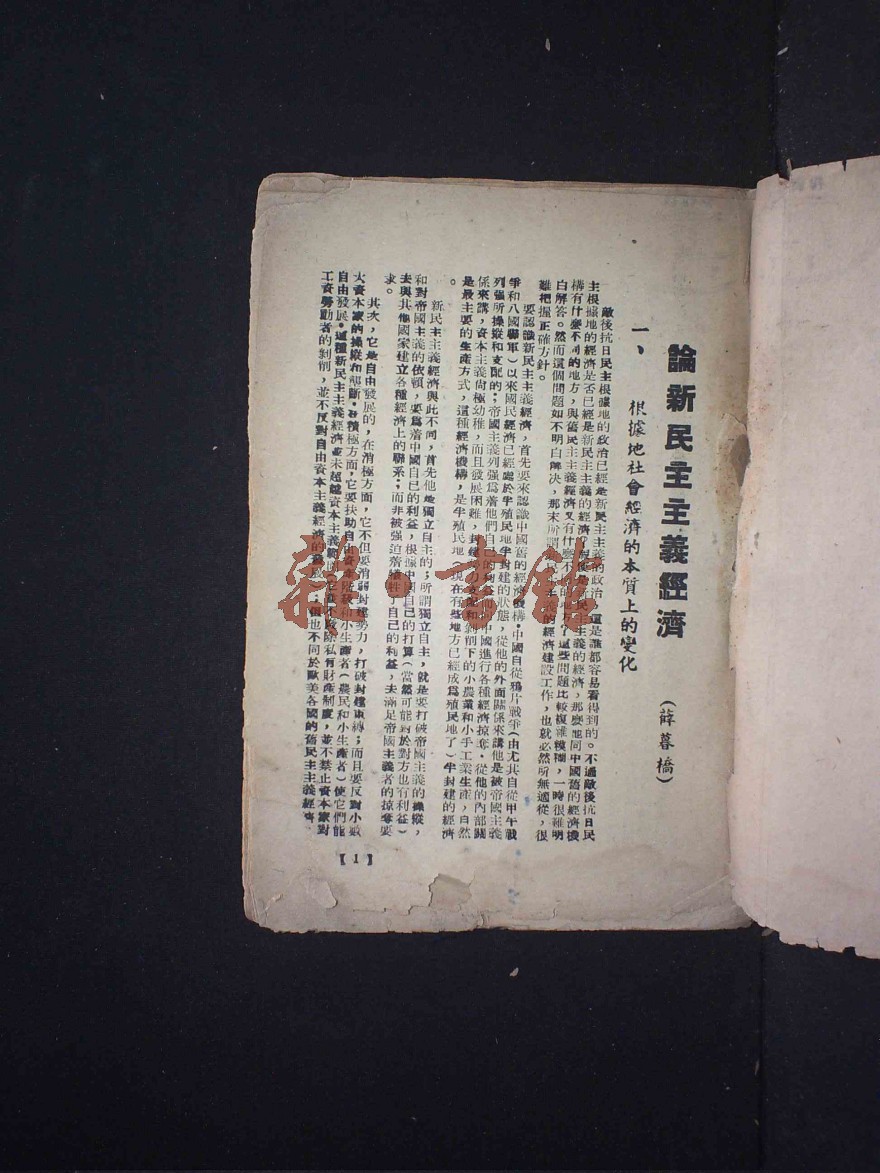 論新民主主義經濟
（薛暮橋）
一、根據地社會經濟的本質上的變化
敵後抗日民主根據地的政治已經是新民主主義的政治，這是誰都容易看得到的。不過敵後抗日民
主根據地的經濟是否已經是新民主主義的經濟？假使是新民主主義的經濟，那麼他同中國舊的經濟機
構有什麼不同的地方，與舊民主主義經濟又有什麼不同的地方？這些問題比較複雜模糊，一時很難明
白解答。然而這個問題如不明白解决，那末所謂新民主主義的經濟建設工作，也就必然所無適從，很
難把握正確方針。
要認識新民主主義經濟，首先要來認識中國舊的經濟機構。中國自從鴉片戰爭（由尤其自從甲午戰
爭和八國聯軍）以來國民經濟已經處於半殖民地半封建的狀態，從他的外面關係來講他是被帝國主義
列强所操縱和支配的；帝國主義列强爲着他們自己的利益在中國進行各種經濟掠奪。從他的內部關
係來講，資本主義尙極幼稚，而且發展困難，封建勢力支配和剝削下的小農業和小手工業生產，自然
是最主要的生產方式，這種經濟機構，是半殖民地（現在有些地方已經成爲殖民地了）半封建的經濟
。
新民主主義經濟與此不同，首先他是獨立自主的；所謂獨立自主，就是要打破帝國主義的操縱，
和對帝國主義的依賴，要爲着中國自己的利益，根據中國自己的打算（當然可能對於對方也有利益）
去與其他國家建立各種經濟上的聯系；而非被强迫着犧牲了自己的利益，去滿足帝國主義者的掠奪要
求。
其次，它是自由發展的，在消極方面，它不但要消弱封建勢力，打破封建束縛；而且要反對小數
大資本家的操縱和壟斷。在積極方面，它要扶助自由資產階級和小生產者（農民和小生產者）使它們能
自由發展。這種新民主主義經濟並未超越資本主義範圍，它並不廢除私有財產制度，並不禁止資本家對
工資勞動者的剝削，並不反對自由資本主義經濟的發展；但也不同於歐美各國的舊民主主義經濟，
【1】
雜·書館